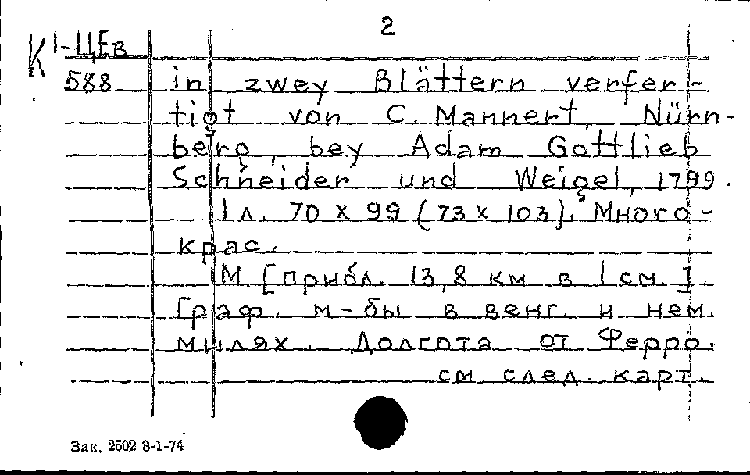 2
К 1-ЦЕв
588 in zwey Blättern verfer-
tigt von C. Mannert, Nürn-
berg, bey Adam Gottlieb
Schneider und Weigel, 1799.
1 л. 70 х 99 (73 х 103). Много-
крас.
М [прибл. 13,8 км в 1 см.]
Граф. м-бы в венг. и нем.
милях. Долгота от Ферро.
см след. карт.
Зак. 2502 8-1-74